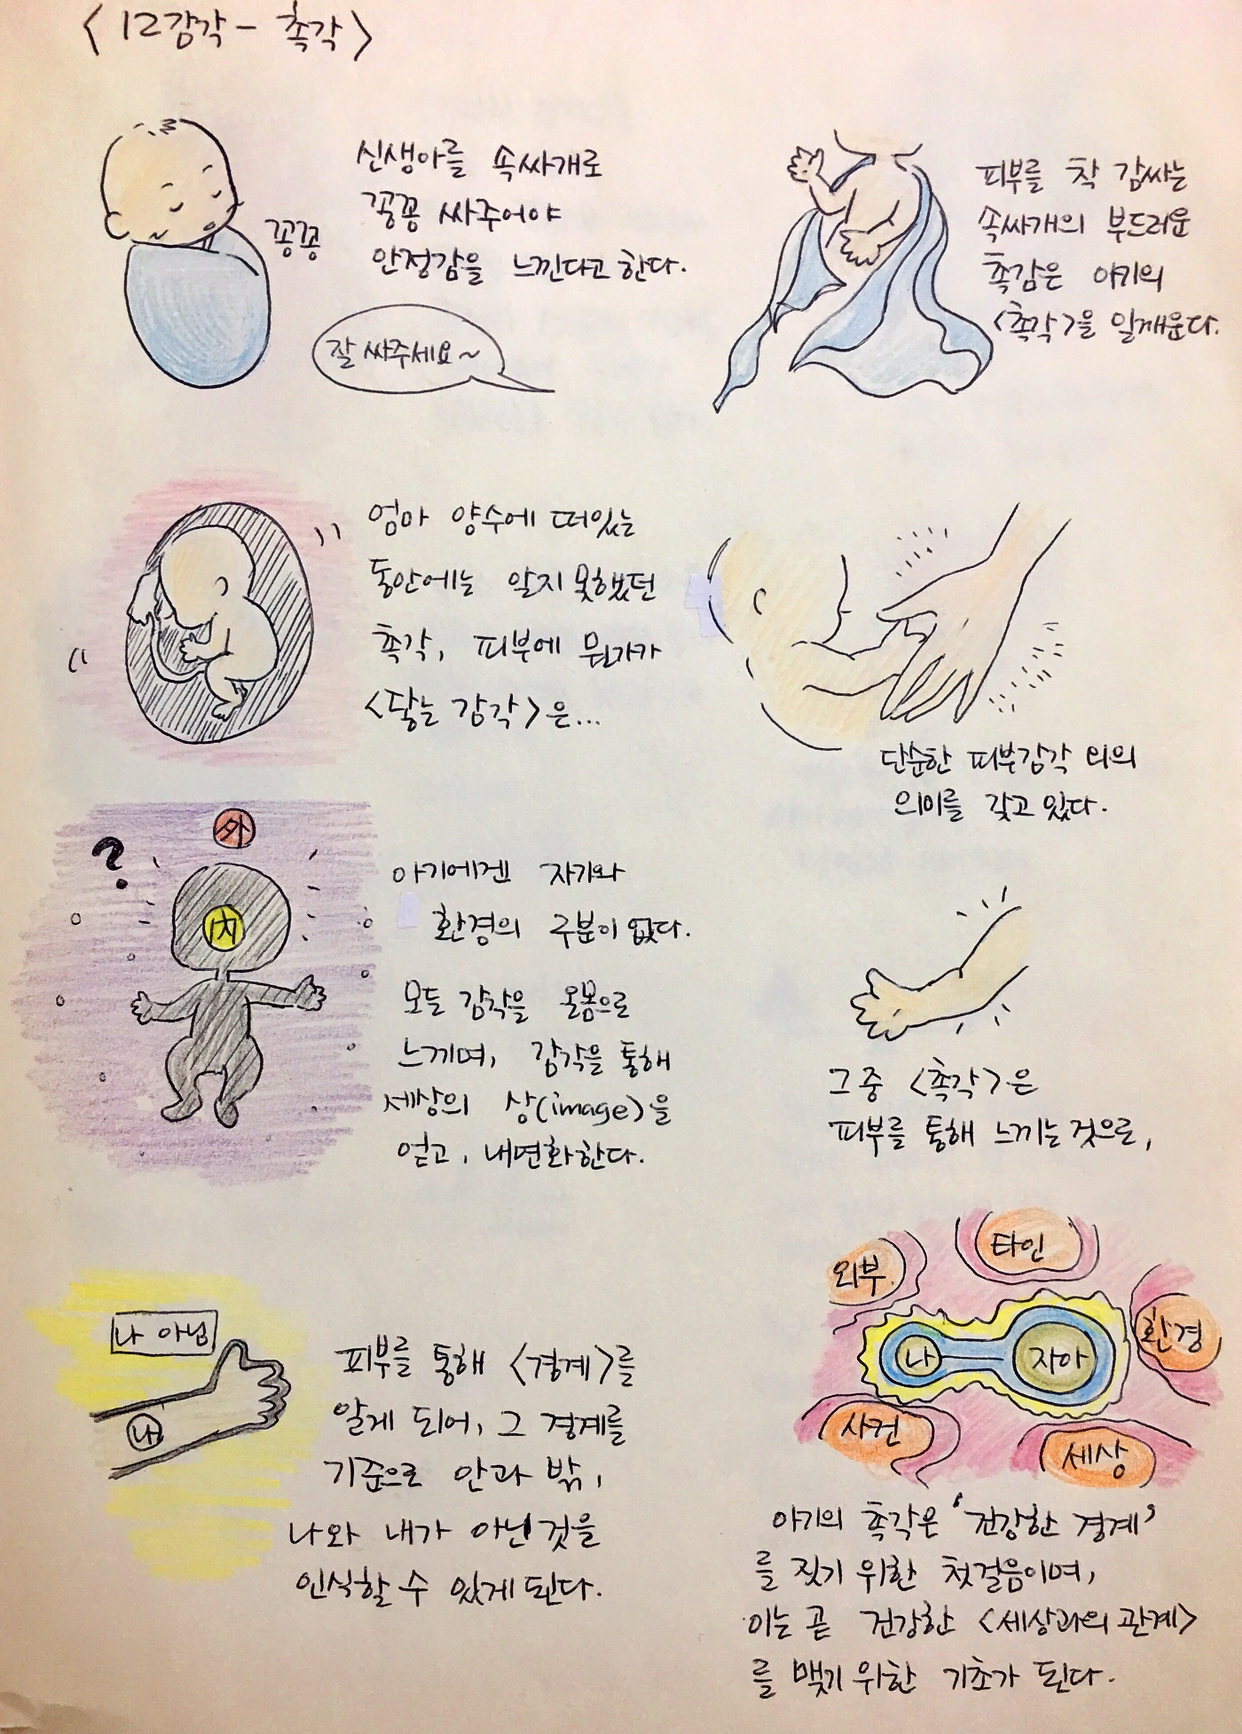 <12감각 - 촉각>
꽁꽁
신생아를 속싸개로
꽁꽁 싸주어야
안정감을 느낀다고 한다.
잘 싸주세요~
피부를 착 감싸는
속싸개의 부드러운
촉감은 아기의
<촉각>을 일깨운다.
엄마 양수에 떠있는
동안에는 알지 못했던
촉각, 피부에 뭔가가
<닿는 감각>은...
단순한 피부감각 외의
의미를 갖고 있다.
外
?
内
아기에겐 자기와
환경의 구분이 없다.
모든 감각을 온몸으로
느끼며, 감각을 통해
세상의 상(image)을
얻고, 내면화한다.
그 중 <촉각>은
피부를 통해 느끼는 것으로,
나 아님
나
피부를 통해 <경계>를
알게 되어, 그 경계를
기준으로 안과 밖,
나와 내가 아닌 것을
인식할 수 있게 된다.
타인
외부
환경
나
자아
사건
세상
아기의 촉각은 '건강한 경계'
를 짓기 위한 첫걸음이며,
이는 곧 건강한 <세상과의 관계>
를 맺기 위한 기초가 된다.